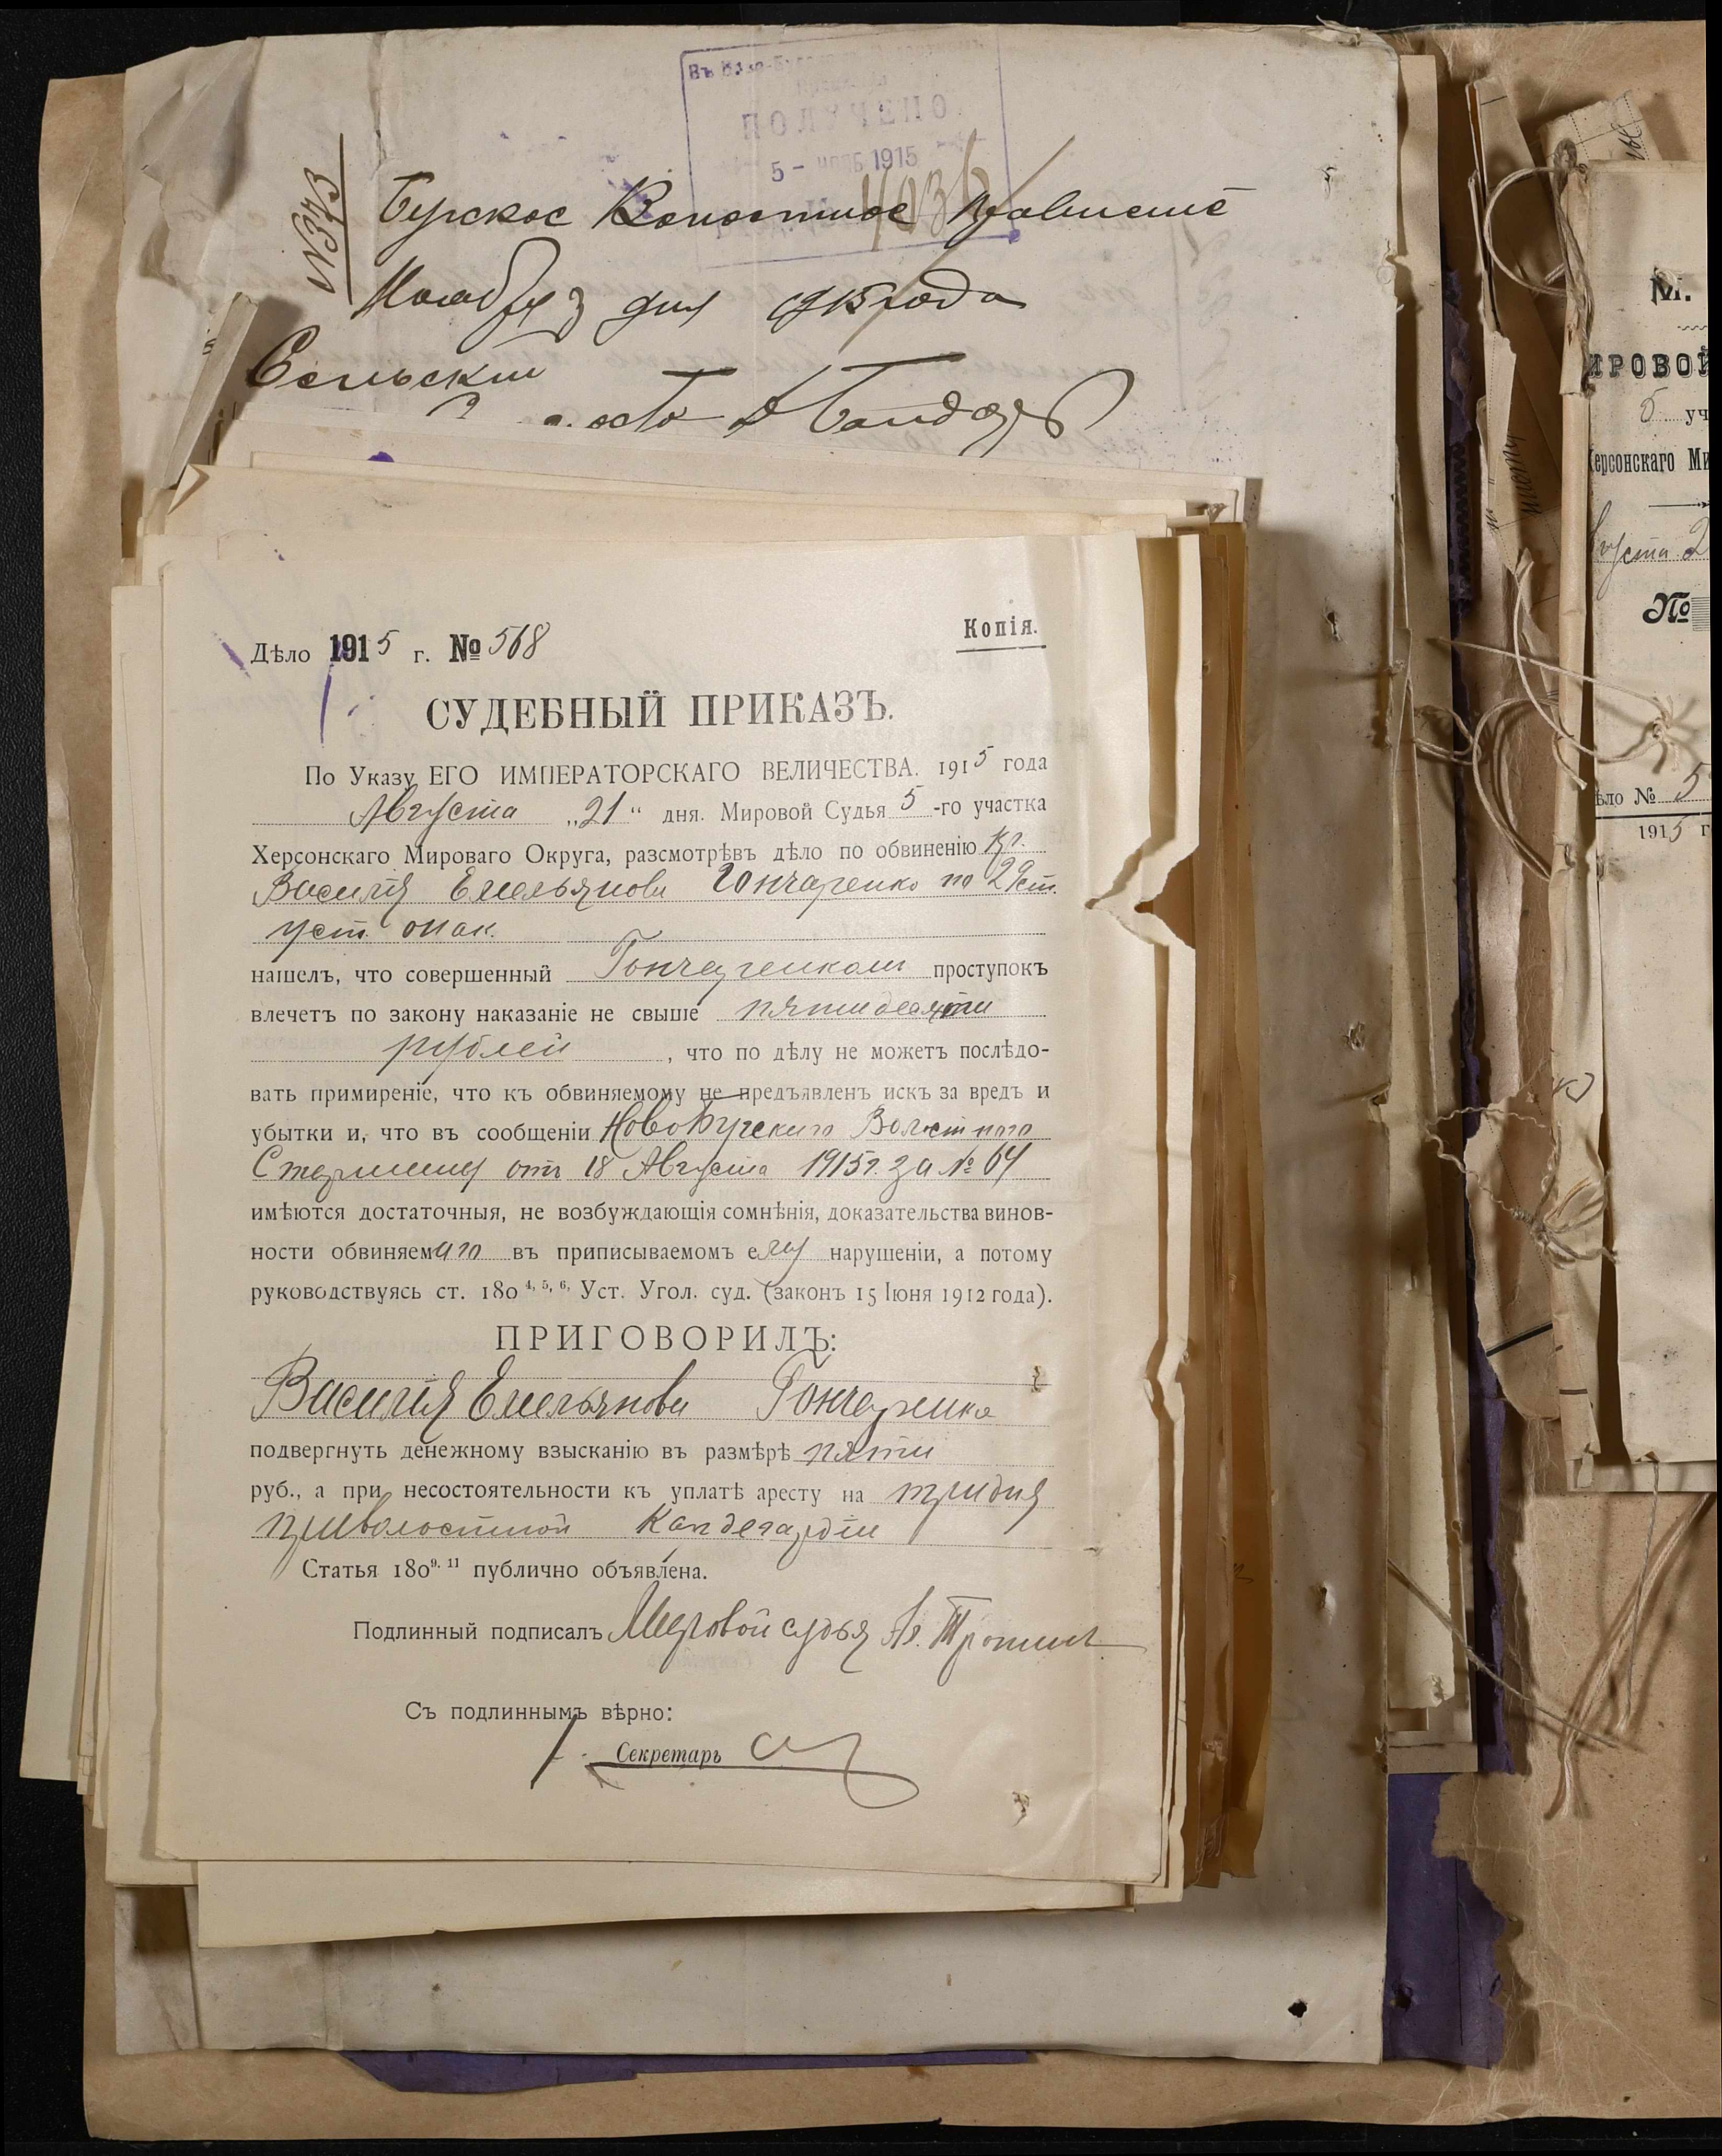 ПОЛУЧЕНО
5 - НОЯБ 1915
№373
Бугское Волостное Правление
Ноября 3 дня 1915 года
Сельский
Дѣло 1915 г. № 568
Копія.
СУДЕБНЫЙ ПРИКАЗЪ.
По Указу ЕГО ИМПЕРАТОРСКАГО ВЕЛИЧЕСТВА. 1915 года
Августа „21“ дня. Мировой Судья 5-го участка
Херсонскаго Мироваго Округа, разсмотрѣвъ дѣло по обвиненію кр.
Василія Емельянова Гончаренко по 29 ст.
уст. о нак.
нашелъ, что совершенный Гончаренкомъ проступокъ
влечетъ по закону наказаніе не свыше пятидесяти
рублей, что по дѣлу не можетъ послѣдо-
вать примиреніе, что къ обвиняемому не предъявленъ искъ за вредъ и
убытки и, что въ сообщеніи Ново Бугскаго Волостного
Старшины отъ 18 Августа 1915 г. за № 64
имѣются достаточныя, не возбуждающія сомнѣнія, доказательства винов-
ности обвиняемаго въ приписываемомъ ему нарушеніи, а потому
руководствуясь ст. 180 4, 5, 6, Уст. Угол. суд. (законъ 15 Іюня 1912 года).
ПРИГОВОРИЛЪ:
Василія Емельянова Гончаренко
подвергнуть денежному взысканію въ размѣрѣ пяти
руб., а при несостоятельности къ уплатѣ аресту на три дня
при волостной
Статья 180 9. 11 публично объявлена.
Подлинный подписалъ Мировой судья
Съ подлиннымъ вѣрно:
Секретарь
М.
ИРОВОЙ
5 уч
Херсонскаго Ми
Августа 2
№
ѣло № 5
1915 г